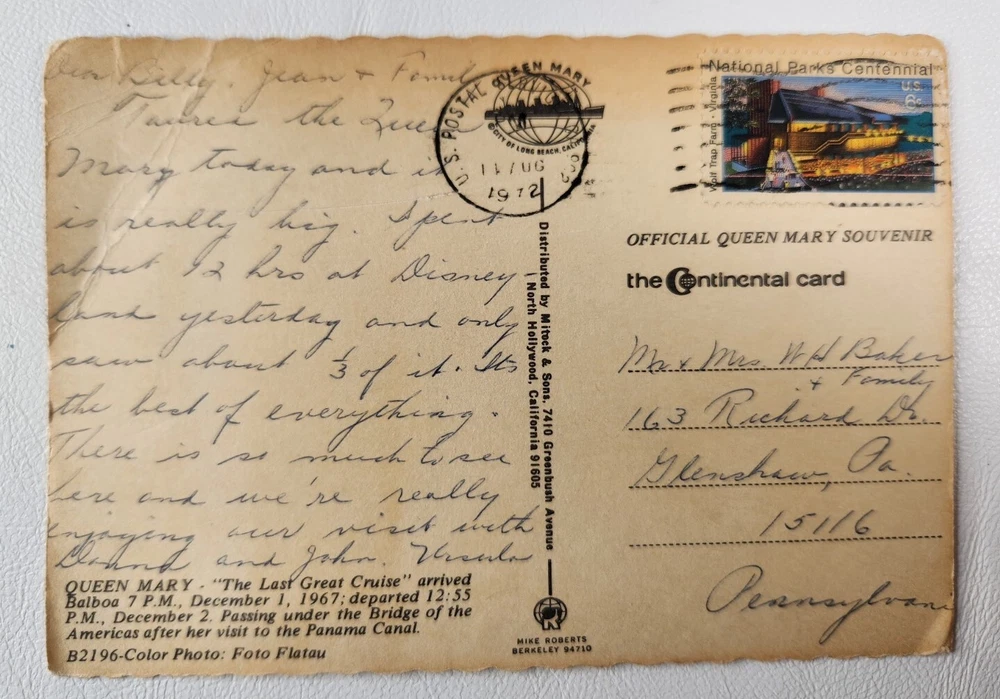 Dear Billy, Jean + Family
Toured the Queen
Mary today and it
is really big. Spent
about 12 hrs at Disney-
land yesterday and only
saw about 1/3 of it. Its
the best of everything.
There is so much to see
here and we're really
enjoying our visit with
Donna and John. Ursula
QUEEN MARY - "The Last Great Cruise" arrived
Balboa 7 P.M., December 1, 1967; departed 12:55
P.M., December 2. Passing under the Bridge of the
Americas after her visit to the Panama Canal.
B2196-Color Photo: Foto Flatau
U.S. POSTAL QUEEN MARY
CITY OF LONG BEACH, CALIFORNIA
1972
Distributed by Mitock & Sons, 7410 Greenbush Avenue
North Hollywood, California 91605
MIKE ROBERTS
BERKELEY 94710
National Parks Centennial
U.S.
6c
Wolf Trap Farm · Virginia
OFFICIAL QUEEN MARY SOUVENIR
the Continental card
Mr + Mrs. W H Baker
+ Family
163 Richard Dr.
Glenshaw, Pa.
15116
Pennsylvania